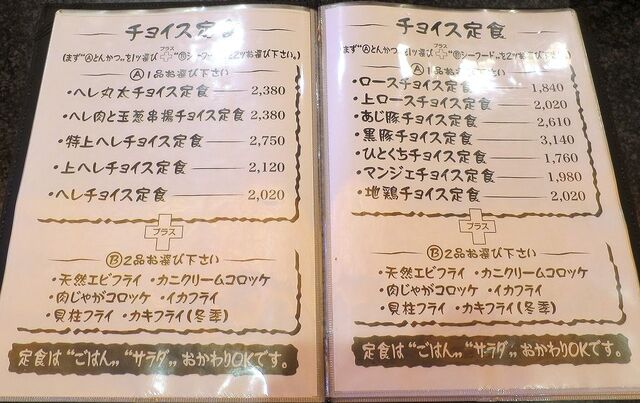 チョイス定食
(まず"Ⓐとんかつ"を1ツ選び プラス "Ⓑシーフード"を2ツお選び下さい。)
Ⓐ1品お選び下さい
・ヘレ丸太チョイス定食 2,380
・ヘレ肉と玉葱串揚チョイス定食 2,380
・特上ヘレチョイス定食 2,750
・上ヘレチョイス定食 2,120
・ヘレチョイス定食 2,020
プラス
Ⓑ2品お選び下さい
・天然エビフライ ・カニクリームコロッケ
・肉じゃがコロッケ ・イカフライ
・貝柱フライ ・カキフライ(冬季)
定食は"ごはん„ "サラダ„ おかわりOKです。
チョイス定食
(まず"Ⓐとんかつ"を1ツ選び プラス "Ⓑシーフード"を2ツお選び下さい。)
Ⓐ1品お選び下さい
・ロースチョイス定食 1,840
・上ロースチョイス定食 2,020
・あじ豚チョイス定食 2,610
・黒豚チョイス定食 3,140
・ひとくちチョイス定食 1,760
・マンジェチョイス定食 1,980
・地鶏チョイス定食 2,020
プラス
Ⓑ2品お選び下さい
・天然エビフライ ・カニクリームコロッケ
・肉じゃがコロッケ ・イカフライ
・貝柱フライ ・カキフライ(冬季)
定食は"ごはん„ "サラダ„ おかわりOKです。